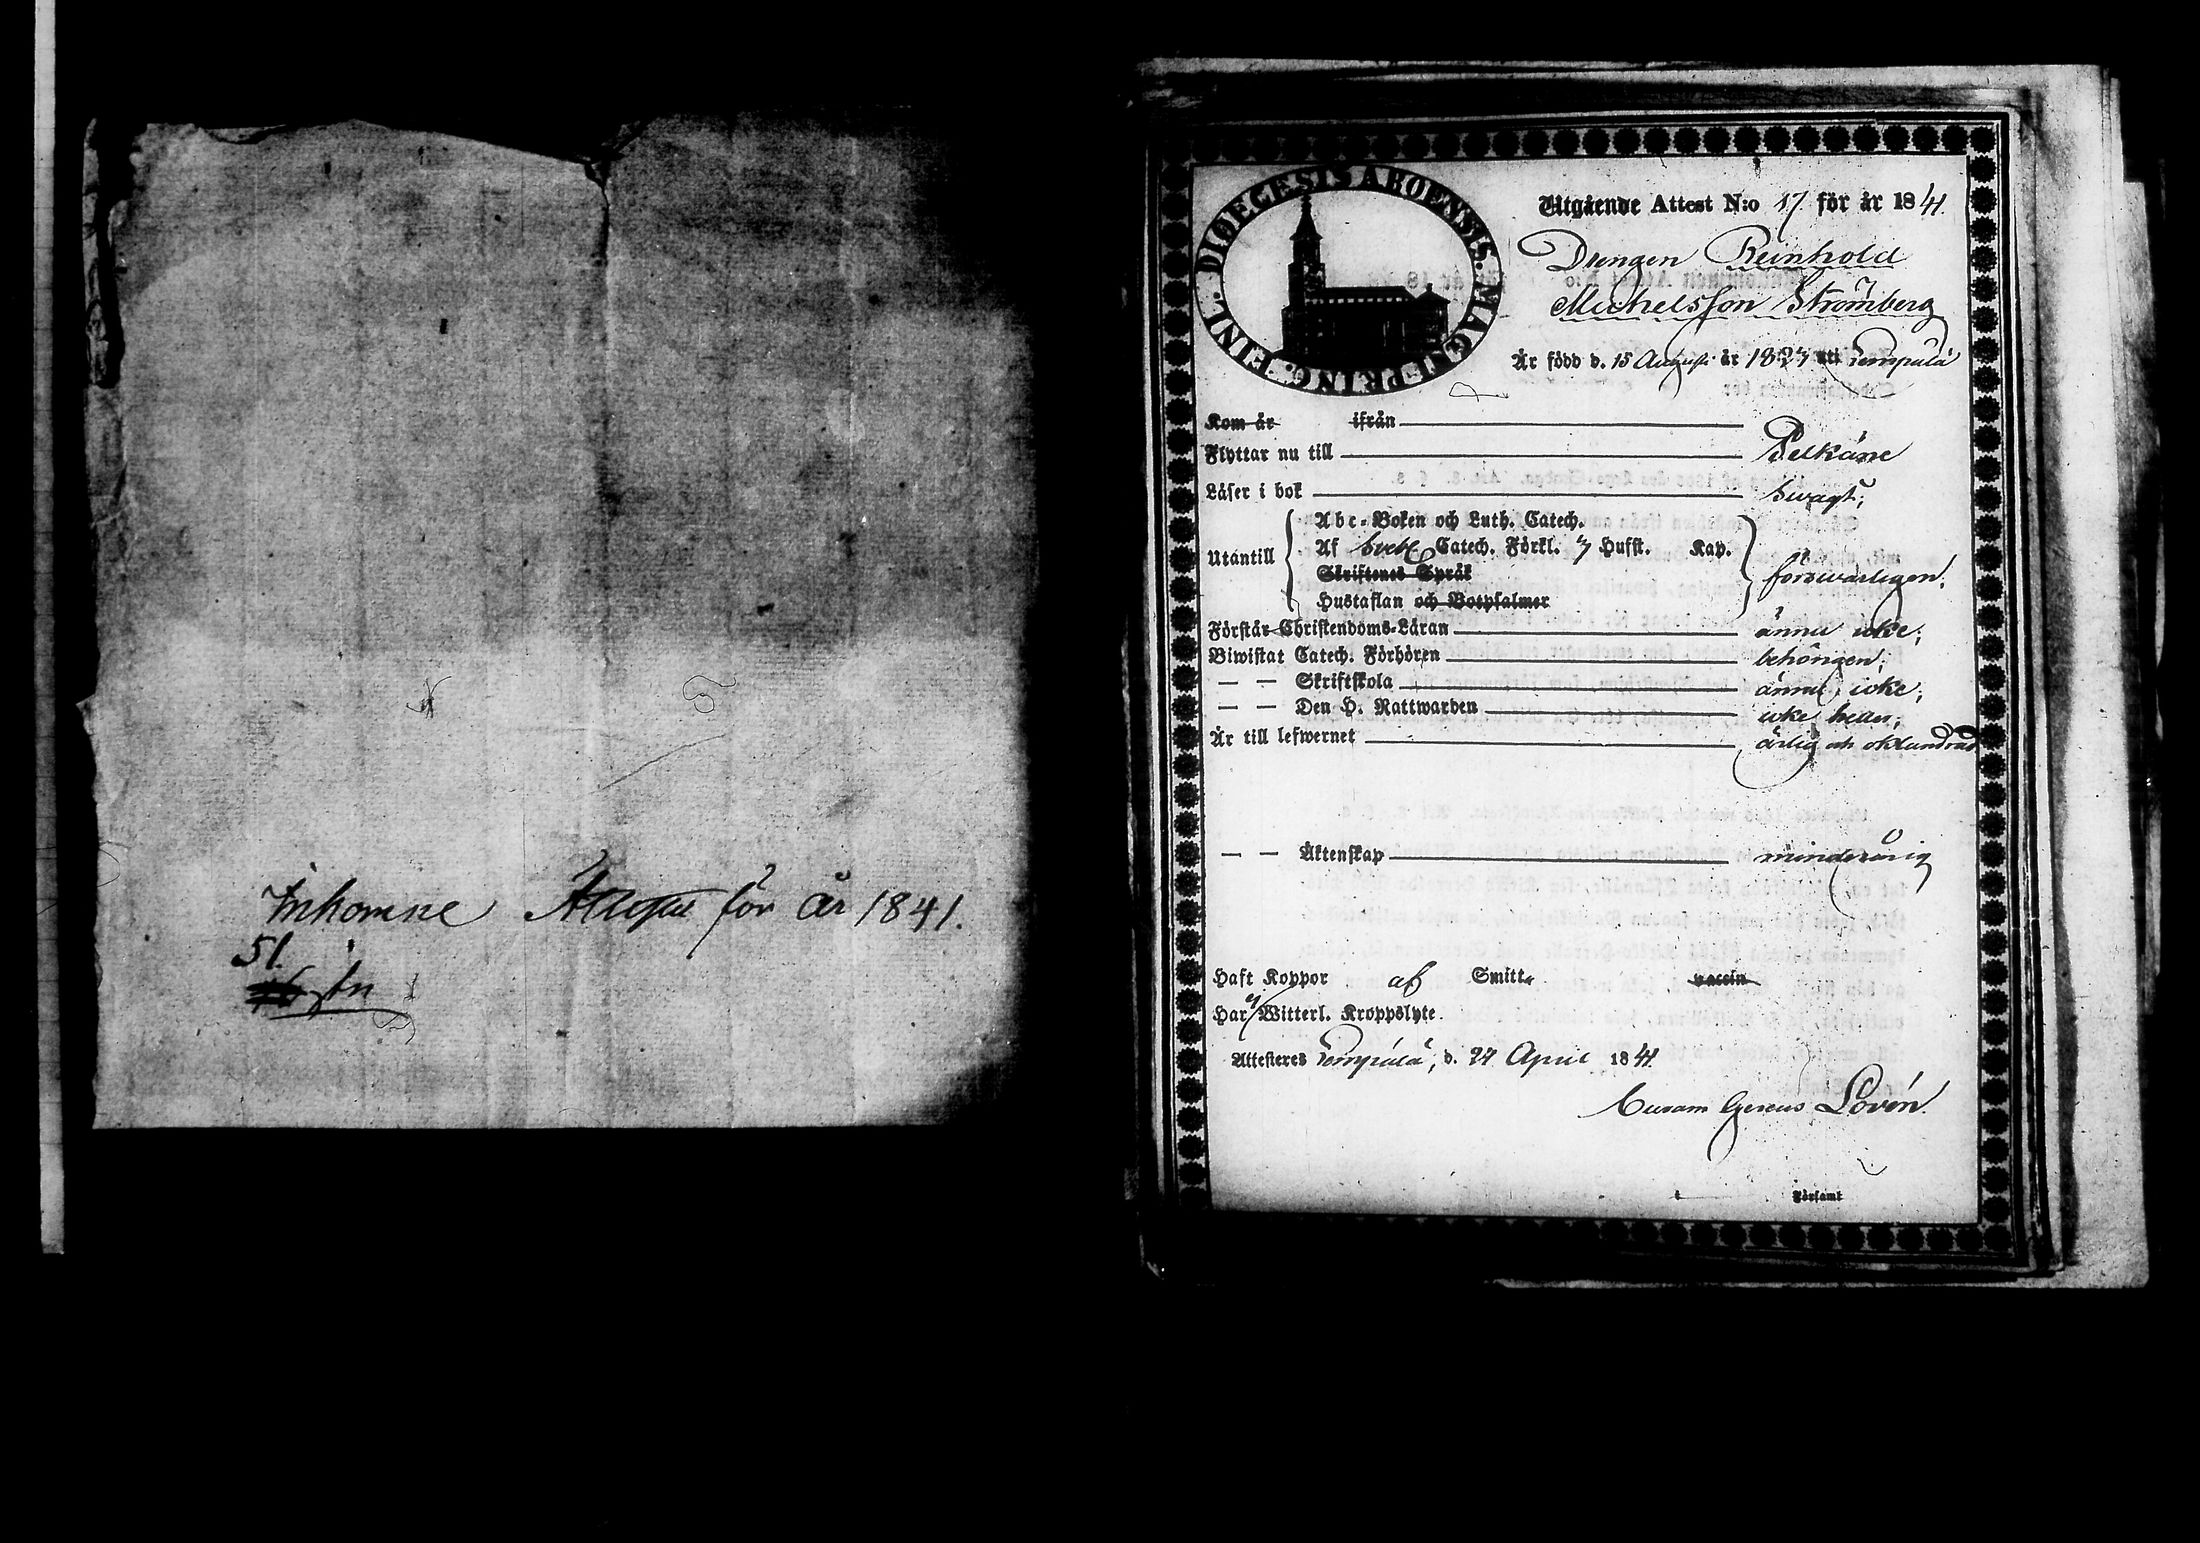 Inkomne Attester för år 1841.
51.
st:n
DIOECESIS ABOENSIS. MAGNI PRINC. FINL.
Utgående Attest N:o 17 för år 1841.
Drengen Reinhold
Michelsson Strömberg
Är född d. 15 Augusti år 1823 uti Lempälä
Kom år ifrån
Flyttar nu till Pelkäne
Läser i bok svagt;
Abc-Boken och Luth. Catech.
Utantill Af Svebel. Catech. Förkl. 7 Hufst. Kap.
Skriftenes Språk
försvarligen;
Hustaflan och Botpsalmer
Förstår Christendoms-Läran ännu icke;
Biwistat Catech. Förhören behörigen;
— — Skriftskola ännu icke;
— — Den H. Nattwarden icke heller;
Är till lefwernet ärlig och oklandrad
— — Äktenskap minderårig
Haft Koppor af Smitta vaccin
Har ej Witterl. Kroppslyte
Attesteres Lempälä, d. 24 April 1841.
Curam Gerens Lovén.
i Församl